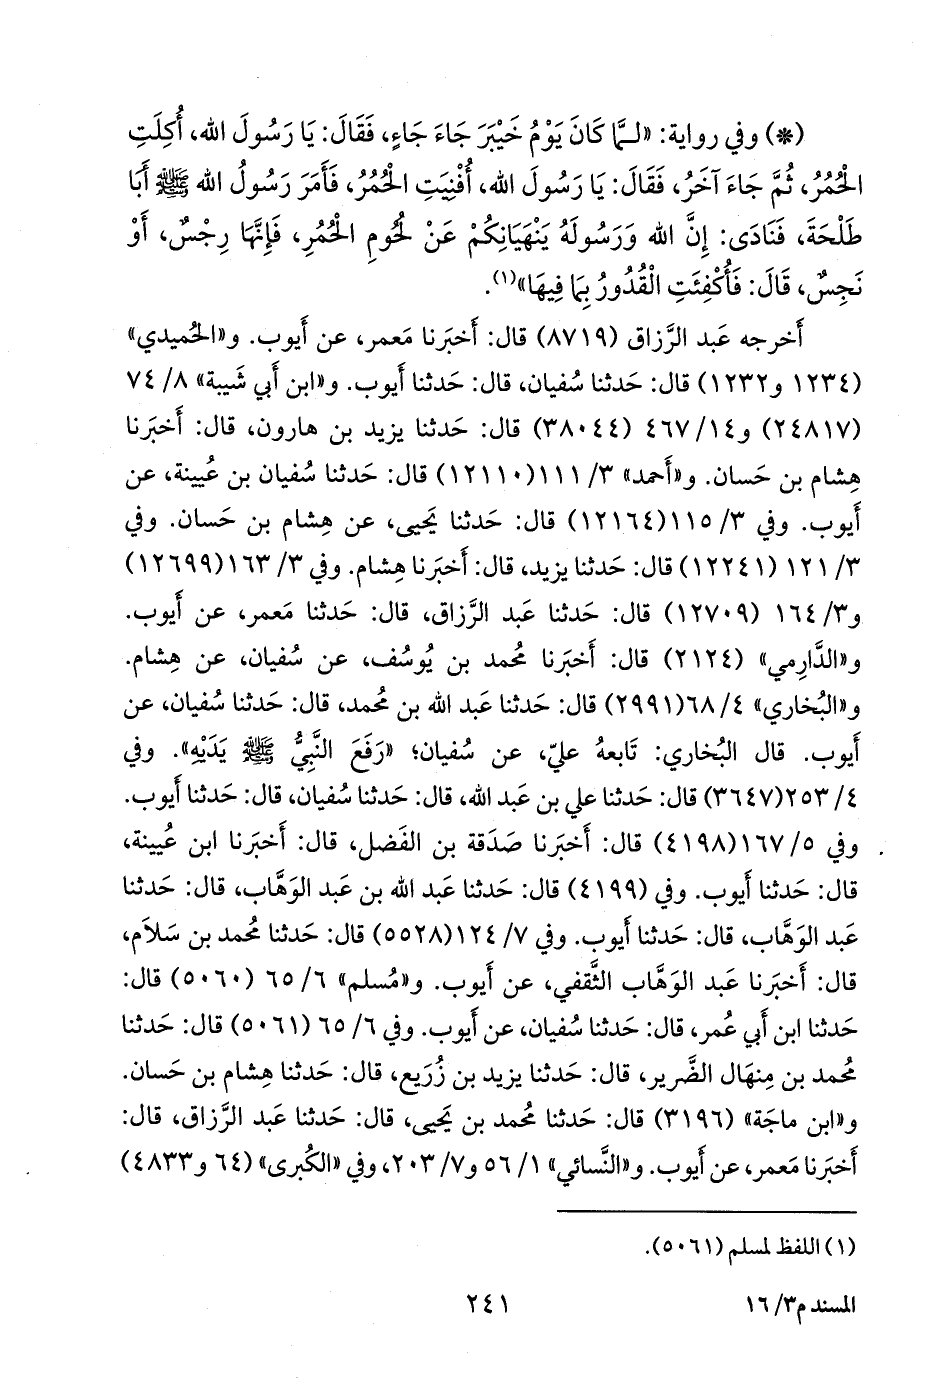 (*) وفي رواية: «لـمَّا كَانَ يَوْمُ خَيْبَرَ جَاءَ جَاءٍ، فَقَالَ: يَا رَسُولَ الله، أُكِلَتِ
الْحُمُرُ، ثُمَّ جَاءَ آخَرُ، فَقَالَ: يَا رَسُولَ الله، أُفْنِيَتِ الْحُمُرُ، فَأَمَرَ رَسُولُ الله ﷺ أَبَا
طَلْحَةَ، فَنَادَى: إِنَّ الله وَرَسُولَهُ يَنْهَيَانِكُمْ عَنْ لُحُومِ الْحُمُرِ، فَإِنَّهَا رِجْسٌ، أَوْ
نَجِسٌ، قَالَ: فَأُكْفِئَتِ الْقُدُورُ بِمَا فِيهَا»(١).
أَخرجه عَبد الرَّزاق (٨٧١٩) قال: أَخبَرنا مَعمر، عن أَيوب. و«الحُميدي»
(١٢٣٤ و١٢٣٢) قال: حَدثنا سُفيان، قال: حَدثنا أَيوب. و«ابن أَبي شَيبة» ٨/ ٧٤
(٢٤٨١٧) و١٤/ ٤٦٧ (٣٨٠٤٤) قال: حَدثنا يزيد بن هارون، قال: أَخبَرنا
هِشام بن حَسان. و«أَحمد» ٣/ ١١١(١٢١١٠) قال: حَدثنا سُفيان بن عُيينة، عن
أَيوب. وفي ٣/ ١١٥(١٢١٦٤) قال: حَدثنا يَحيى، عن هِشام بن حَسان. وفي
٣/ ١٢١ (١٢٢٤١) قال: حَدثنا يزيد، قال: أَخبَرنا هِشام. وفي ٣/ ١٦٣(١٢٦٩٩)
و٣/ ١٦٤ (١٢٧٠٩) قال: حَدثنا عَبد الرَّزاق، قال: حَدثنا مَعمر، عن أَيوب.
و«الدَّارِمي» (٢١٢٤) قال: أَخبَرنا مُحمد بن يُوسُف، عن سُفيان، عن هِشام.
و«البُخاري» ٤/ ٦٨(٢٩٩١) قال: حَدثنا عَبد الله بن مُحمد، قال: حَدثنا سُفيان، عن
أَيوب. قال البُخاري: تَابعهُ عليّ، عن سُفيان؛ «رَفَعَ النَّبيُّ ﷺ يَدَيْهِ». وفي
٤/ ٢٥٣(٣٦٤٧) قال: حَدثنا علي بن عَبد الله، قال: حَدثنا سُفيان، قال: حَدثنا أَيوب.
وفي ٥/ ١٦٧(٤١٩٨) قال: أَخبَرنا صَدَقة بن الفَضل، قال: أَخبَرنا ابن عُيينة،
قال: حَدثنا أَيوب. وفي (٤١٩٩) قال: حَدثنا عَبد الله بن عَبد الوَهَّاب، قال: حَدثنا
عَبد الوَهَّاب، قال: حَدثنا أَيوب. وفي ٧/ ١٢٤(٥٥٢٨) قال: حَدثنا مُحمد بن سَلَام،
قال: أَخبَرنا عَبد الوَهَّاب الثَّقفي، عن أَيوب. و«مُسلم» ٦/ ٦٥ (٥٠٦٠) قال:
حَدثنا ابن أَبي عُمر، قال: حَدثنا سُفيان، عن أَيوب. وفي ٦/ ٦٥ (٥٠٦١) قال: حَدثنا
مُحمد بن مِنهال الضَّرير، قال: حَدثنا يزيد بن زُرَيع، قال: حَدثنا هِشام بن حَسان.
و«ابن ماجَة» (٣١٩٦) قال: حَدثنا مُحمد بن يَحيى، قال: حَدثنا عَبد الرَّزاق، قال:
أَخبَرنا مَعمر، عن أَيوب. و«النَّسائي» ١/ ٥٦ و٧/ ٢٠٣، وفي «الكُبرى» (٦٤ و٤٨٣٣)
(١) اللفظ لمسلم (٥٠٦١).
المسند م٣/ ١٦
٢٤١